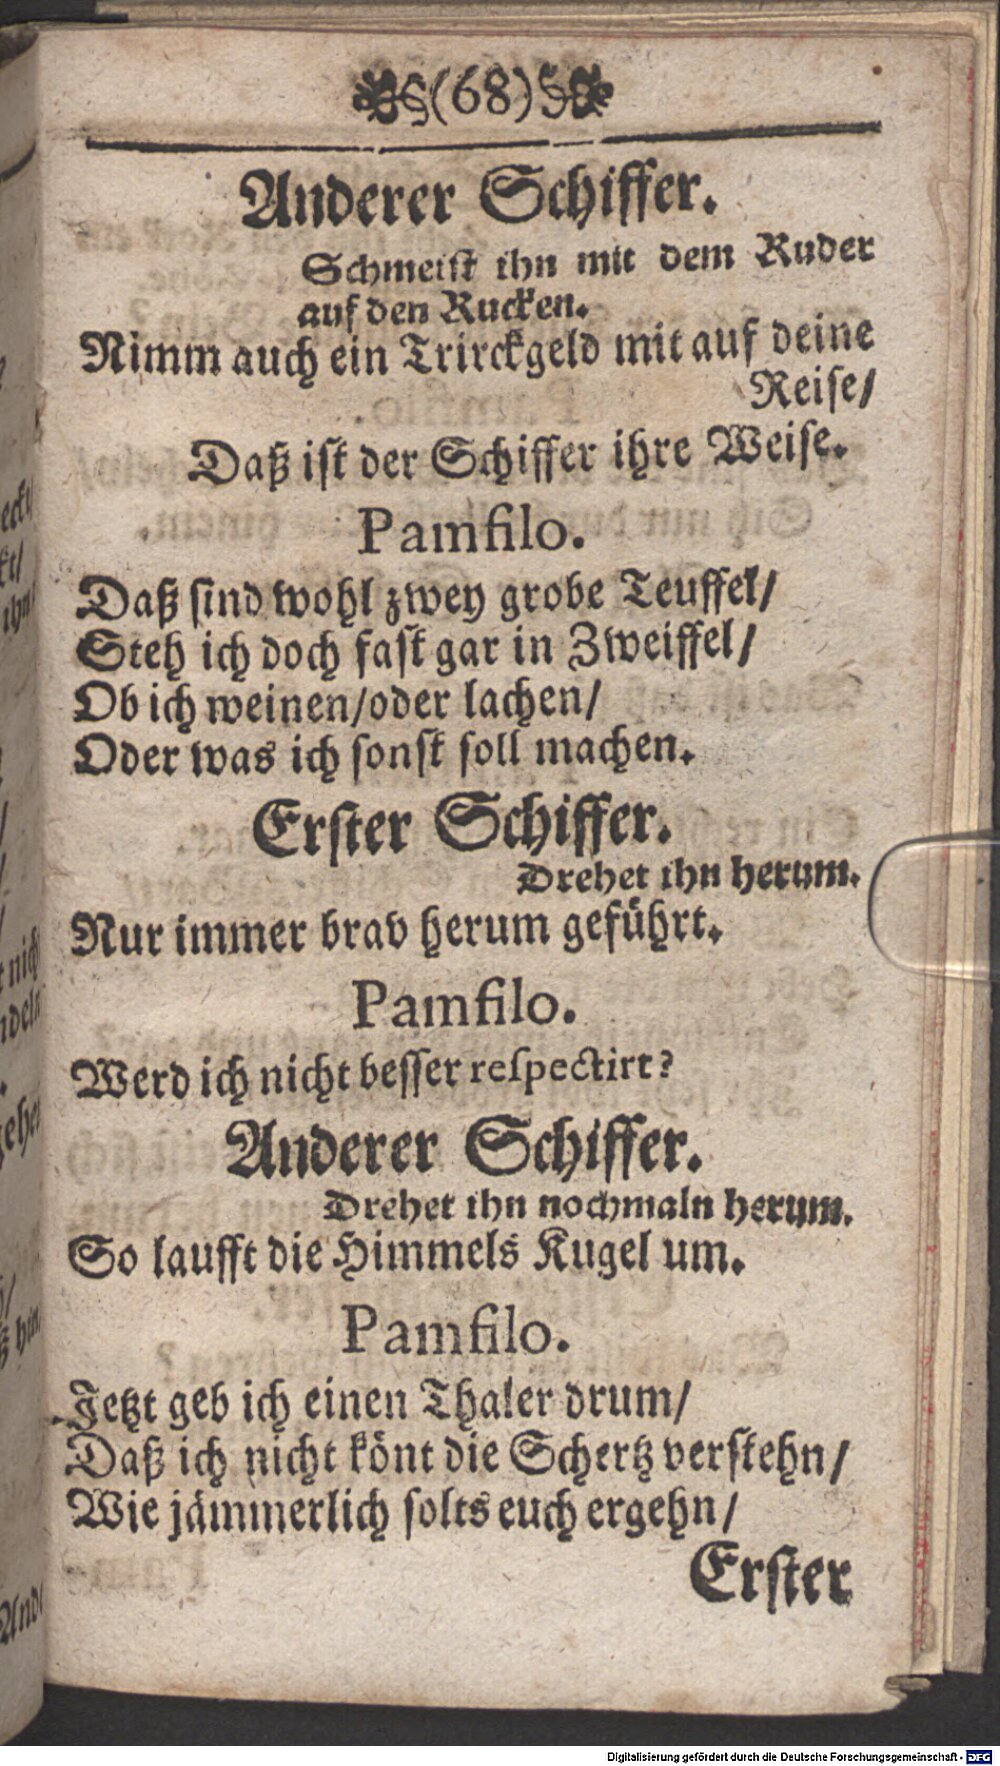 (68)
Anderer Schiffer.
Schmeist ihn mit dem Ruder
auf den Rucken.
Nimm auch ein Trirckgeld mit auf deine
Reise/
Daß ist der Schiffer ihre Weise.
Pamfilo.
Daß sind wohl zwey grobe Teuffel/
Steh ich doch fast gar in Zweiffel/
Ob ich weinen/oder lachen/
Oder was ich sonst soll machen.
Erster Schiffer.
Drehet ihn herum.
Nur immer brav herum geführt.
Pamfilo.
Werd ich nicht besser respectirt?
Anderer Schiffer.
Drehet ihn nochmaln herum.
So laufft die Himmels Kugel um.
Pamfilo.
Jetzt geb ich einen Thaler drum/
Daß ich nicht könt die Schertz verstehn/
Wie jämmerlich solts euch ergehn/
Erster
Digitalisierung gefördert durch die Deutsche Forschungsgemeinschaft - DFG